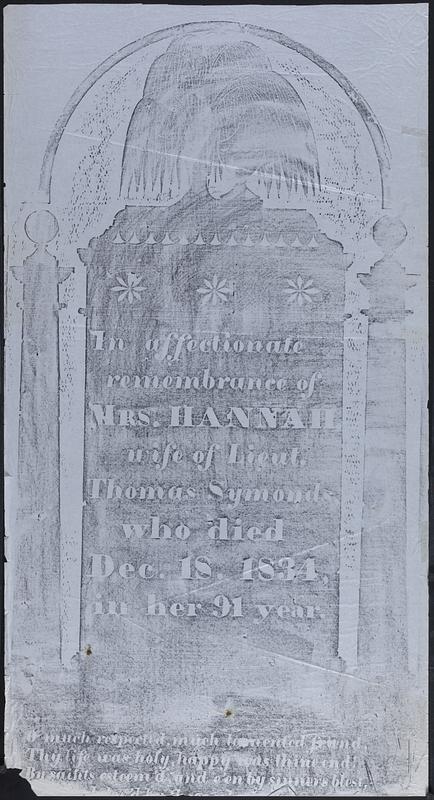 In affectionate
remembrance of
MRS. HANNAH
wife of Lieut.
Thomas Symonds
who died
Dec. 18, 1834,
in her 91 year.
O much respected, much lamented friend,
Thy life was holy, happy was thine end;
By saints esteem'd, and e'en by sinners blest,